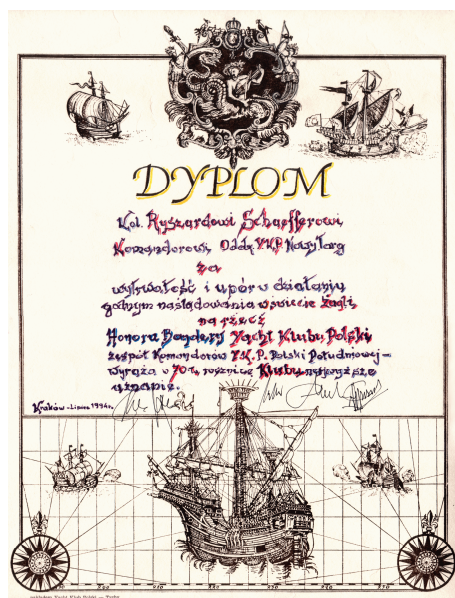 DYPLOM
Kol. Ryszardowi Schaefferowi
Komandorowi Oddz. Y.K.P. Nowy Targ
za
wytrwałość i upór w działaniu
godnym naśladowania w świecie żagli,
na rzecz
Honoru Bandery Yacht Klubu Polski,
zespół Komandorów Y.K.P. Polski Południowej –
wyraża w 70 tą rocznicę Klubu najwyższe
uznanie.
Kraków - Lipiec 1994r.
nakładem Yacht Klub Polski —